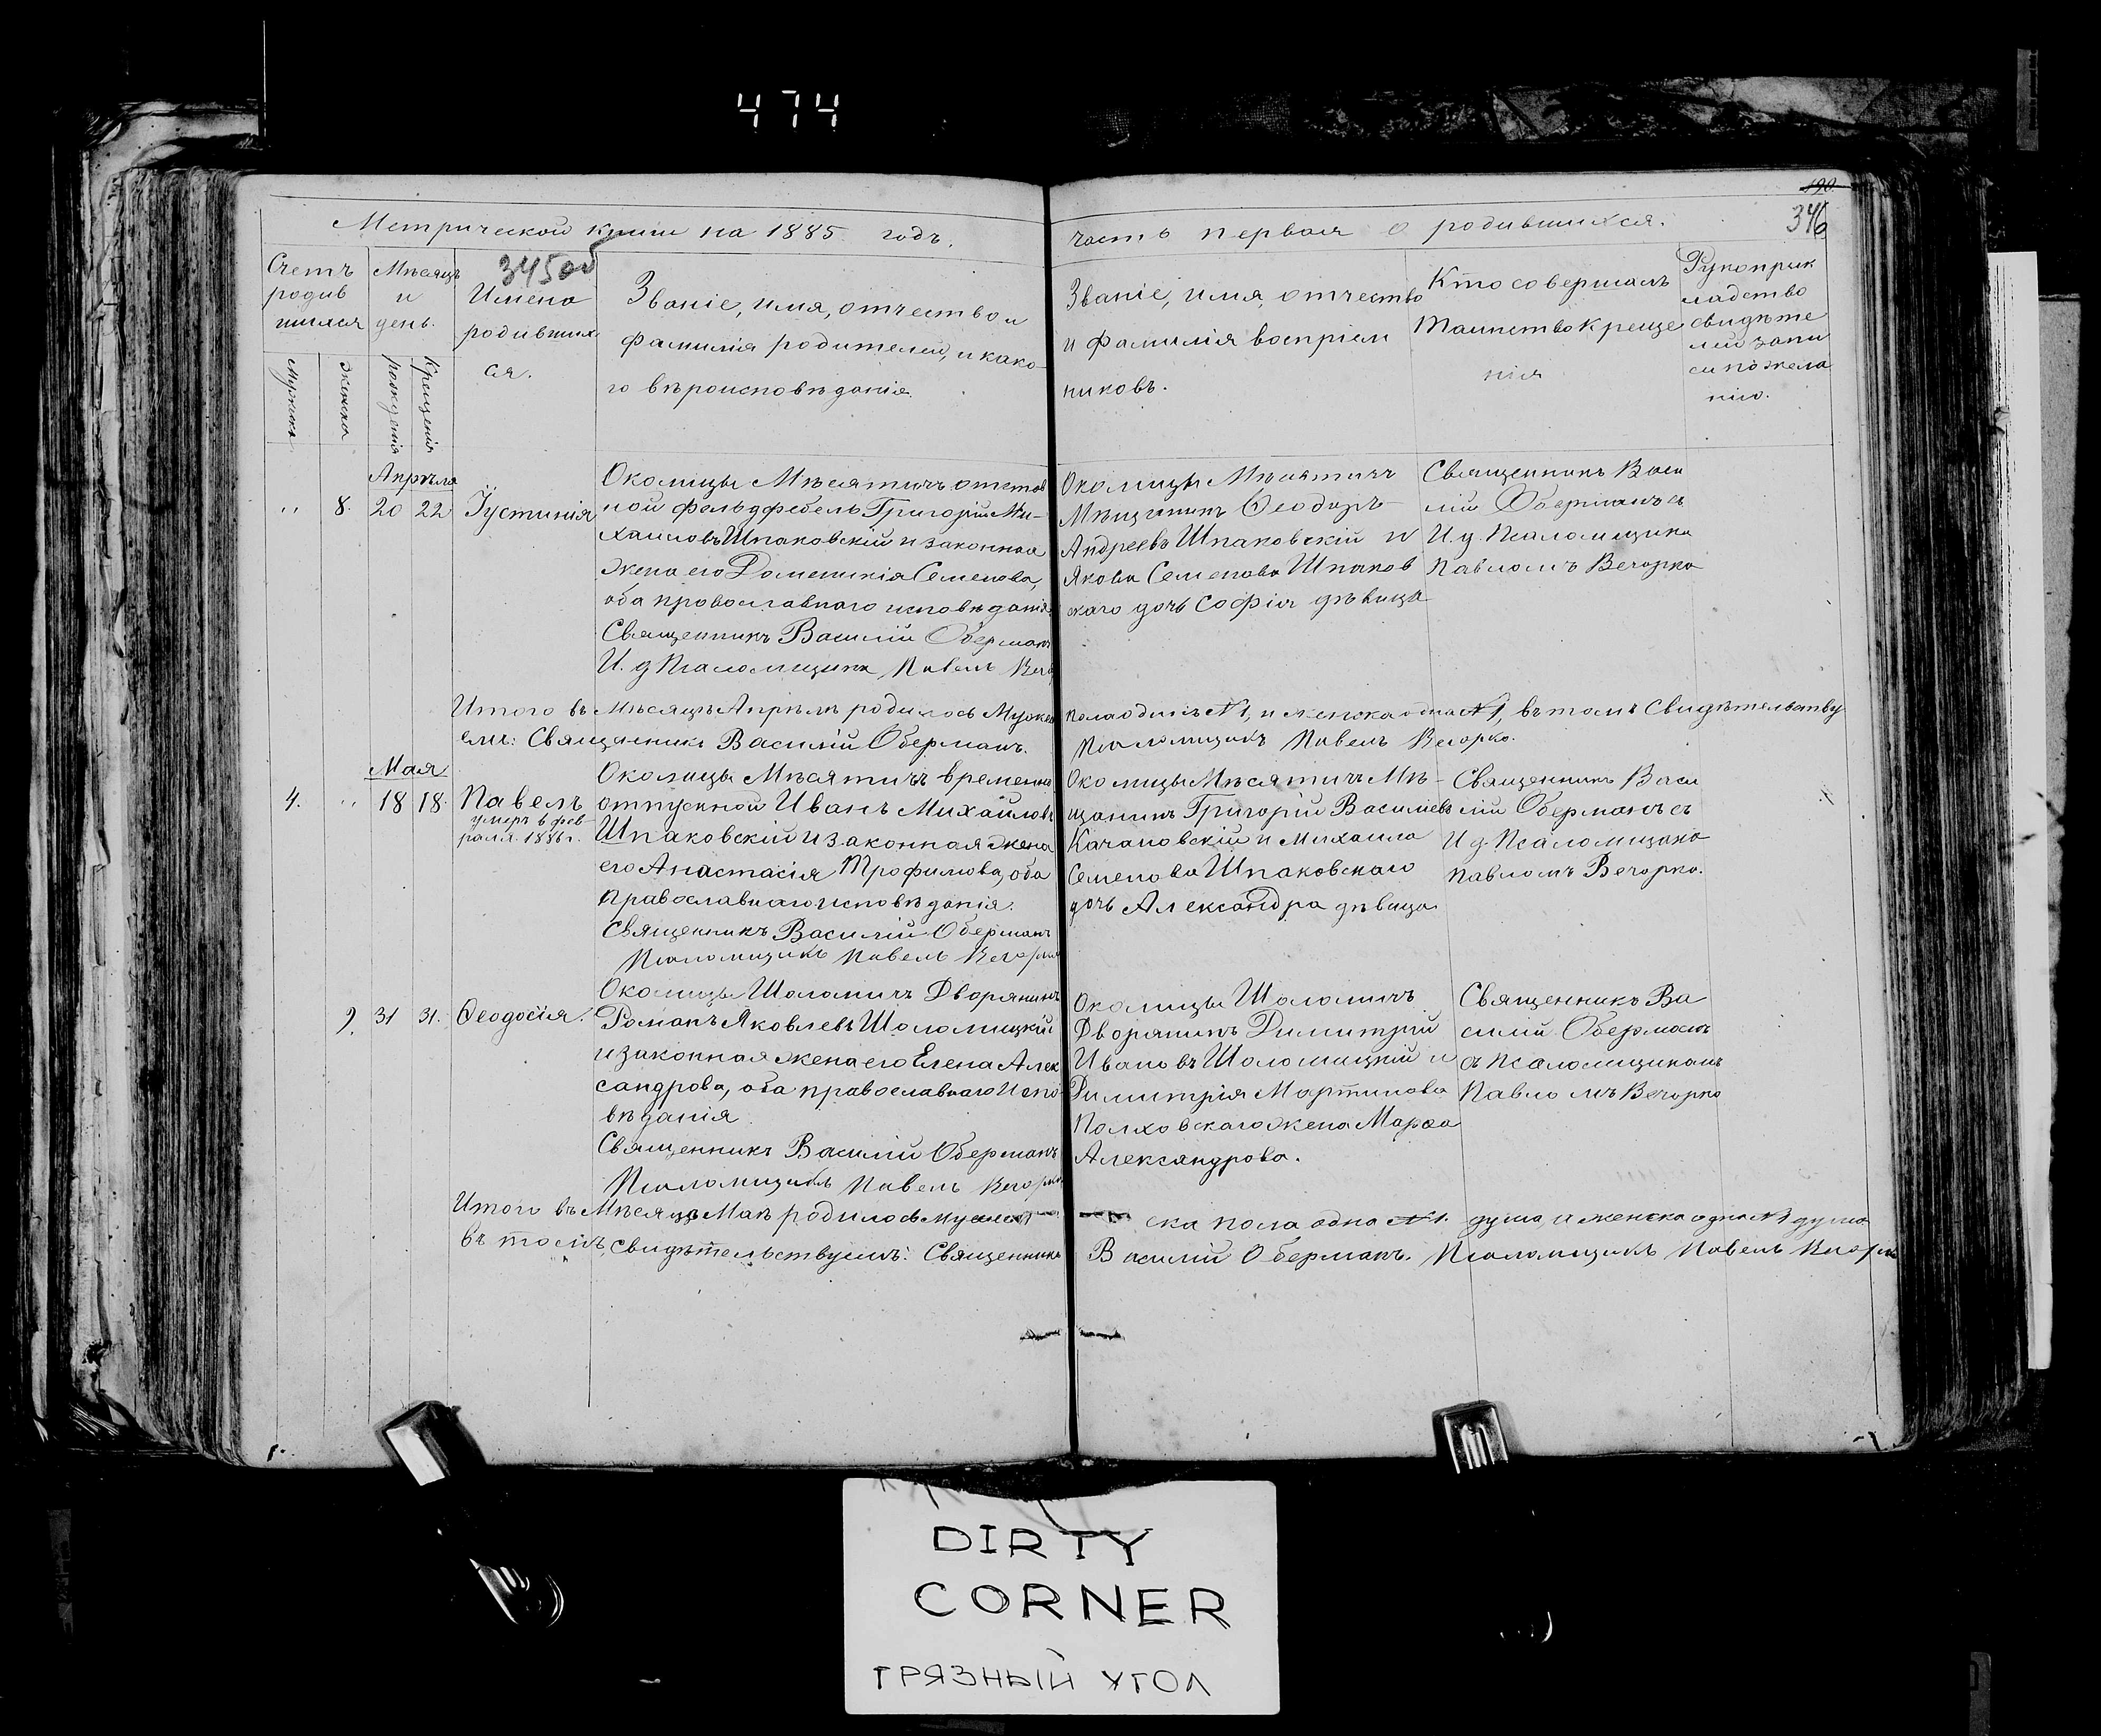 474
190
Метрической книги на 1885 годъ.
часть первая о родившихся.
346
345об
Счетъ
родив
шихся
Мѣсяцъ
и
день.
Имена
родивших
ся.
Званіе, имя, отчество и
фамилія родителей, и како-
го вѣроисповѣданія.
Званіе, имя, отчество
и фамилія воспріем
никовъ.
Кто совершалъ
таинство Креще
нія
Рукоприк
ладство
свидѣте
лей запи
си по жела
нію.
Мужска
Женска
рожденія
Крещенія
Апрѣля
" 8. 20 22 Іустинія
Околицы Мѣсятичъ отстав
ной фельдфебель Григорій Ми-
хаиловъ Шпаковскій и законная
жена его Доменикія Семенова,
оба православнаго исповѣданія
Священникъ Василій Оберманъ
И. д Псаломщика Павелъ Вечо
Околицы Мѣсятичъ
Мѣщанинъ Ѳеодоръ
Андреевъ Шпаковскій и
Якова Семенова Шпаков
скаго дочь Софія дѣвица
Священникъ Васи
лій Оберманъ съ
И. д. Псаломщика
Павломъ Вечорко
Итого въ Мѣсяцѣ Апрѣлѣ родилось Мужска
пола одинъ №1, и женска одна №1, въ томъ Свидѣтельству
емъ: Священникъ Василій Оберманъ.
Псаломщикъ Павелъ Вечорко.
Мая
4. " 18 18. Павелъ
умеръ 6 фев-
раля 1886 г.
Околицы Мѣсятичъ временно
отпускной Иванъ Михайловъ
Шпаковскій и законная жена
его Анастасія Трофимова, оба
православнаго исповѣданія.
Священникъ Василій Оберманъ
Псаломщикъ Павелъ Вечорко
Околицы Мѣсятичъ Мѣ-
щанинъ Григорій Васильевъ
Качановскій и Михаила
Семенова Шпаковскаго
дочь Александра дѣвица
Священникъ Васи
лій Оберманъ съ
И д. Псаломщика
Павломъ Вечорко.
9. 31 31. Ѳеодосія.
Околицы Шоломичъ Дворянинъ
Романъ Яковлевъ Шоломицкій
и законная жена его Елена Алек
сандрова, оба православнаго Испо
вѣданія
Священникъ Василій Оберманъ
Псаломщикъ Павелъ Вечорко
Околицы Шоломичъ
Дворянинъ Димитрій
Ивановъ Шоломицкій и
Димитрія Мартинова
Полховскаго жена Марѳа
Александрова.
Священникъ Ва
силій Оберманъ
съ Псаломщикомъ
Павломъ Вечорко
Итого въ Мѣсяцѣ Маѣ родилось муж
ска пола одна №1. душа, и женска одна №1 душа
въ томъ свидѣтельствуемъ: Священникъ
Василій Оберманъ. Псаломщикъ Павелъ Вечорко
DIRTY
CORNER
ГРЯЗНЫЙ УГОЛ